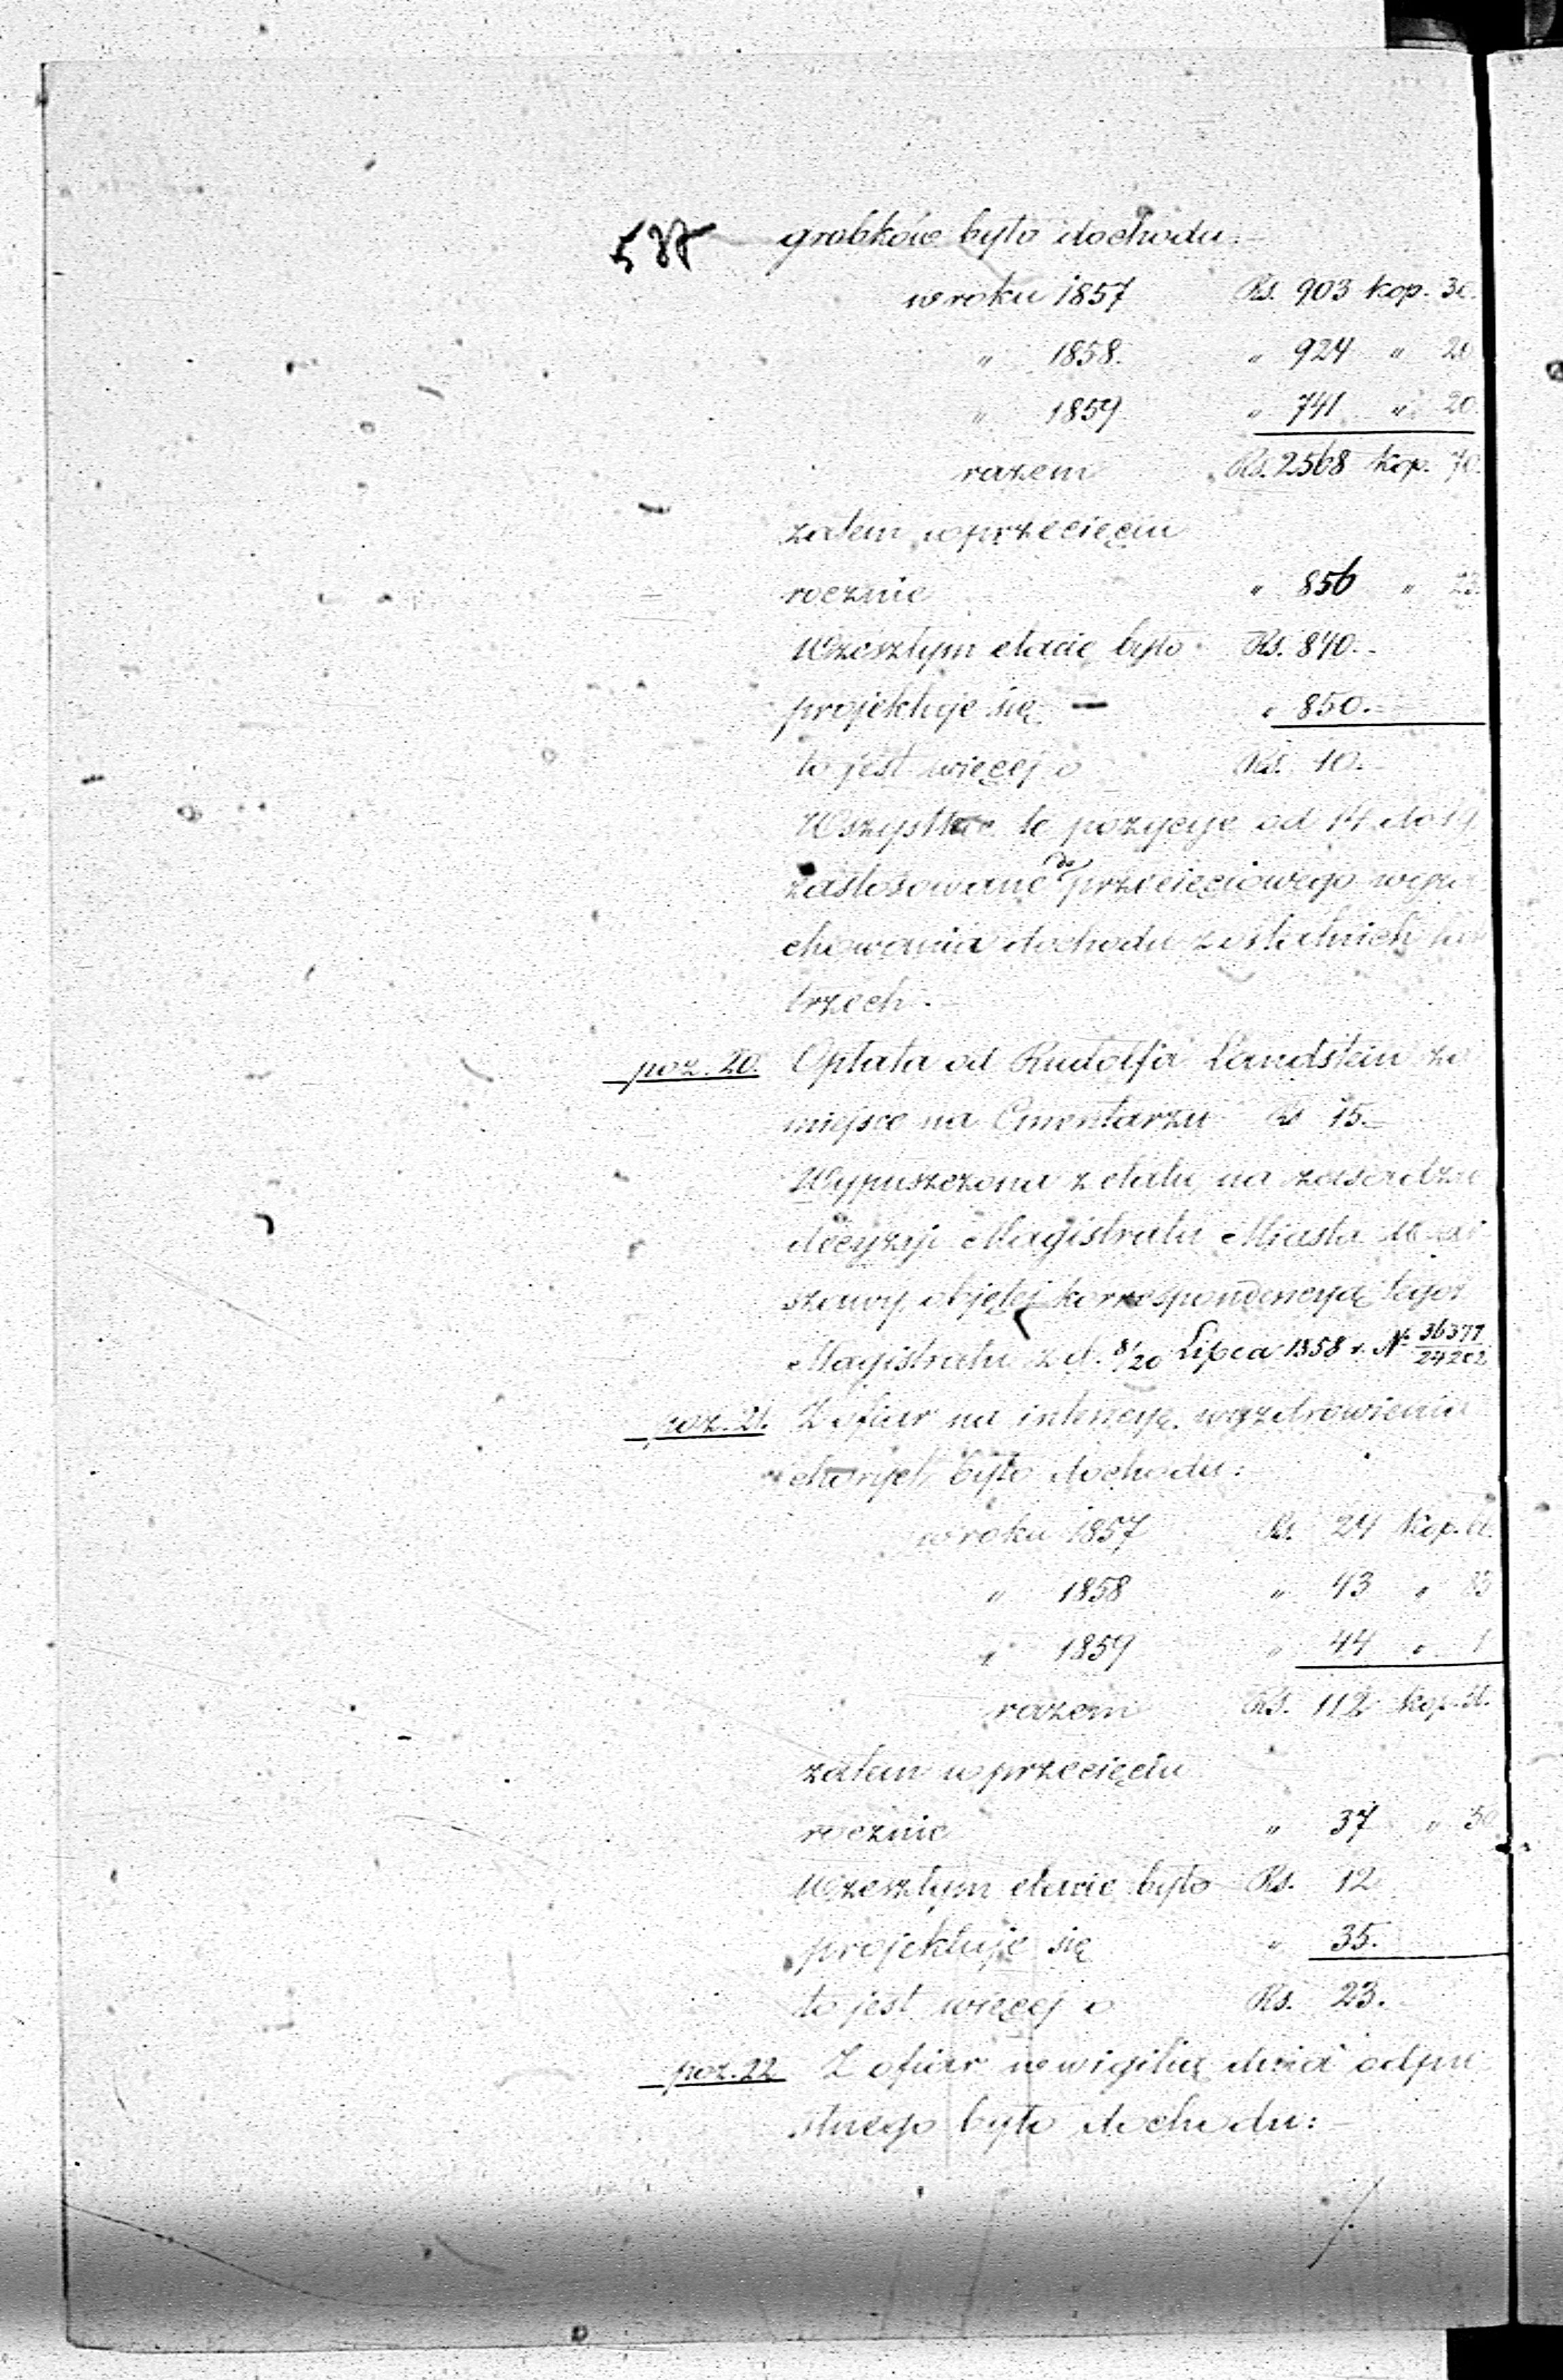 537
grobków było dochodu:—
w roku 1857 Rs. 903 kop. 30.
„ 1858. „ 924 „ 20
„ 1859 „ 741 „ 20.
razem Rs. 2568 kop. 70.
zatem w przecięciu
rocznie „ 856 „ 23.
W zeszłym etacie było Rs. 840.—
projektuje się — „ 850.—
to jest więcej o Rs. 10.—
Wszystkie te pozycye od 14 do 19
zastosowane do przecięciowego wyra
chowania dochodu z ostatnich lat
trzech.—
poz. 20. Opłata od Rudolfa Landstein za
miejsce na Cmentarzu Rs 15.—
Wypuszczona z etatu, na zasadzie
decyzyi Magistratu Miasta War
szawy, objętej korrespondencyą tegoż
Magistratu z d. 8/20 Lipca 1858 r. N. 36377/24202
poz. 21. Z ofiar na intencyę wyzdrowienia
chorych było dochodu:
w roku 1857 Rs. 24 kop.
„ 1858 „ 43 „ 83
„ 1859 „ 44 „ 1
razem Rs. 112 kop.
zatem w przecięciu
rocznie „ 37 „ 50
W zeszłym etacie było Rs. 12
projektuje się „ 35.
to jest więcej o Rs. 23.
poz. 22 Z ofiar w wigilią dnia odpu
stnego było dochodu:—